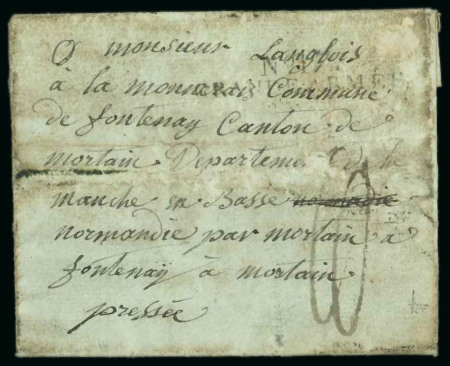 O monsieur Langlois
à la monnerais Commune
de fontenay Canton de
mortain Departement de la
manche en Basse normandie
normandie par mortain a
fontenay à mortain
pressée